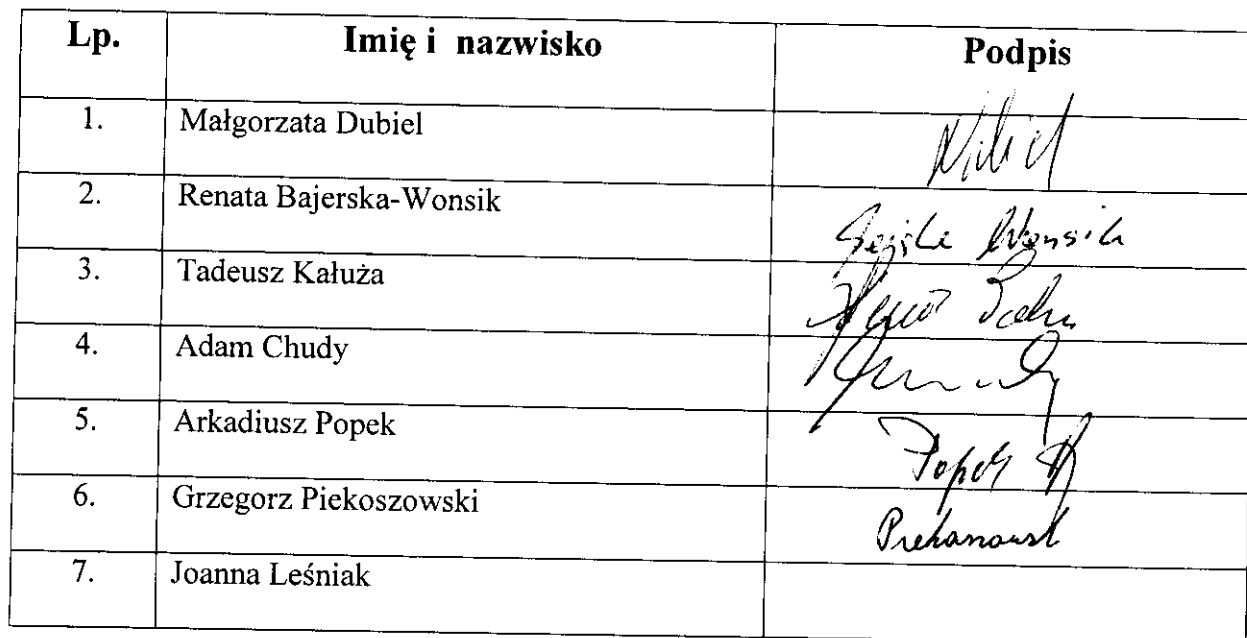 Lp. Imię i nazwisko Podpis
1. Małgorzata Dubiel
2. Renata Bajerska-Wonsik Wonsik
3. Tadeusz Kałuża
4. Adam Chudy
5. Arkadiusz Popek Popek
6. Grzegorz Piekoszowski
7. Joanna Leśniak